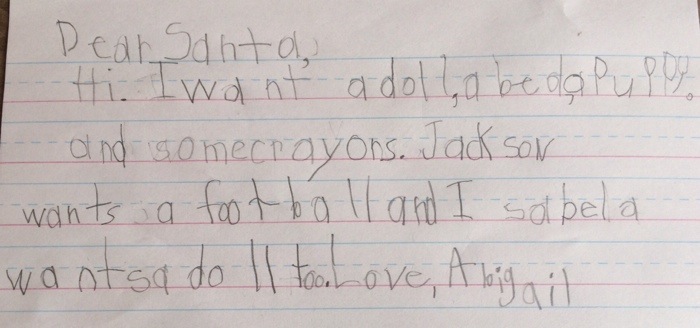 Dear Santa,
Hi. I want a doll, a bed, a Puppy.
and some crayons. Jackson
wants a football and Isabela
wants a doll too. Love, Abigail